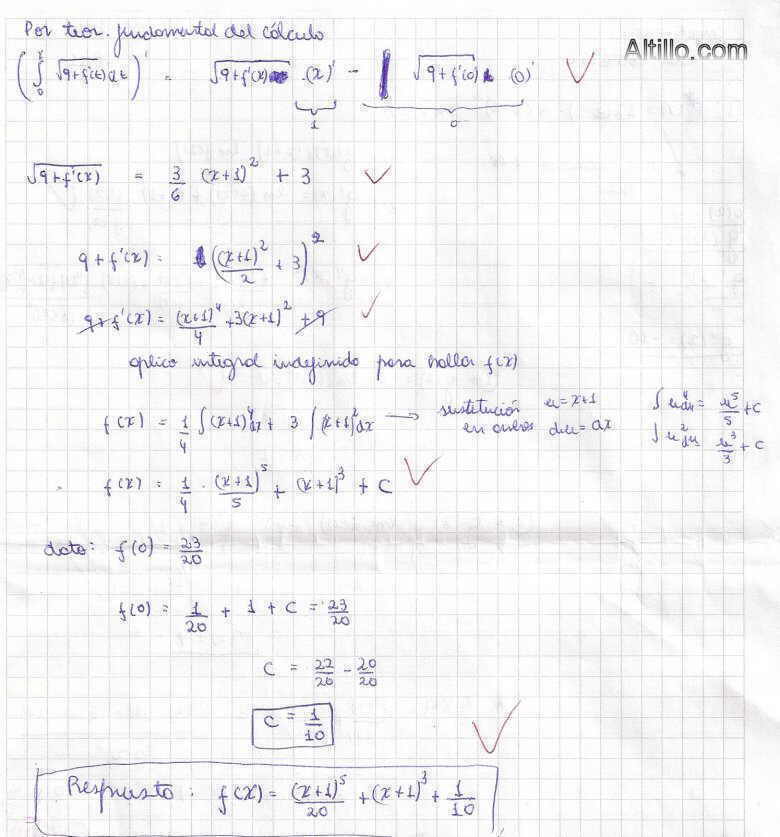 Por teor. fundamental del cálculo
Altillo.com
(∫₀ˣ √(9+f'(t)) dt)' = √(9+f'(x)) · (x)' - √(9+f'(0)) (0)'
1 0
√(9+f'(x)) = 3/6 (x+1)² + 3
9+f'(x) = ((x+1)²/2 + 3)²
9+f'(x) = (x+1)⁴/4 + 3(x+1)² + 9
aplico integral indefinida para hallar f(x)
f(x) = 1/4 ∫(x+1)⁴dx + 3 ∫(x+1)²dx → sustitución u=x+1 ∫u⁴du = u⁵/5 + C
en ambos du=dx ∫u²du = u³/3 + C
f(x) = 1/4 · (x+1)⁵/5 + (x+1)³ + C
dato: f(0) = 23/20
f(0) = 1/20 + 1 + C = 23/20
C = 22/20 - 20/20
C = 1/10
Respuesta: f(x) = (x+1)⁵/20 + (x+1)³ + 1/10